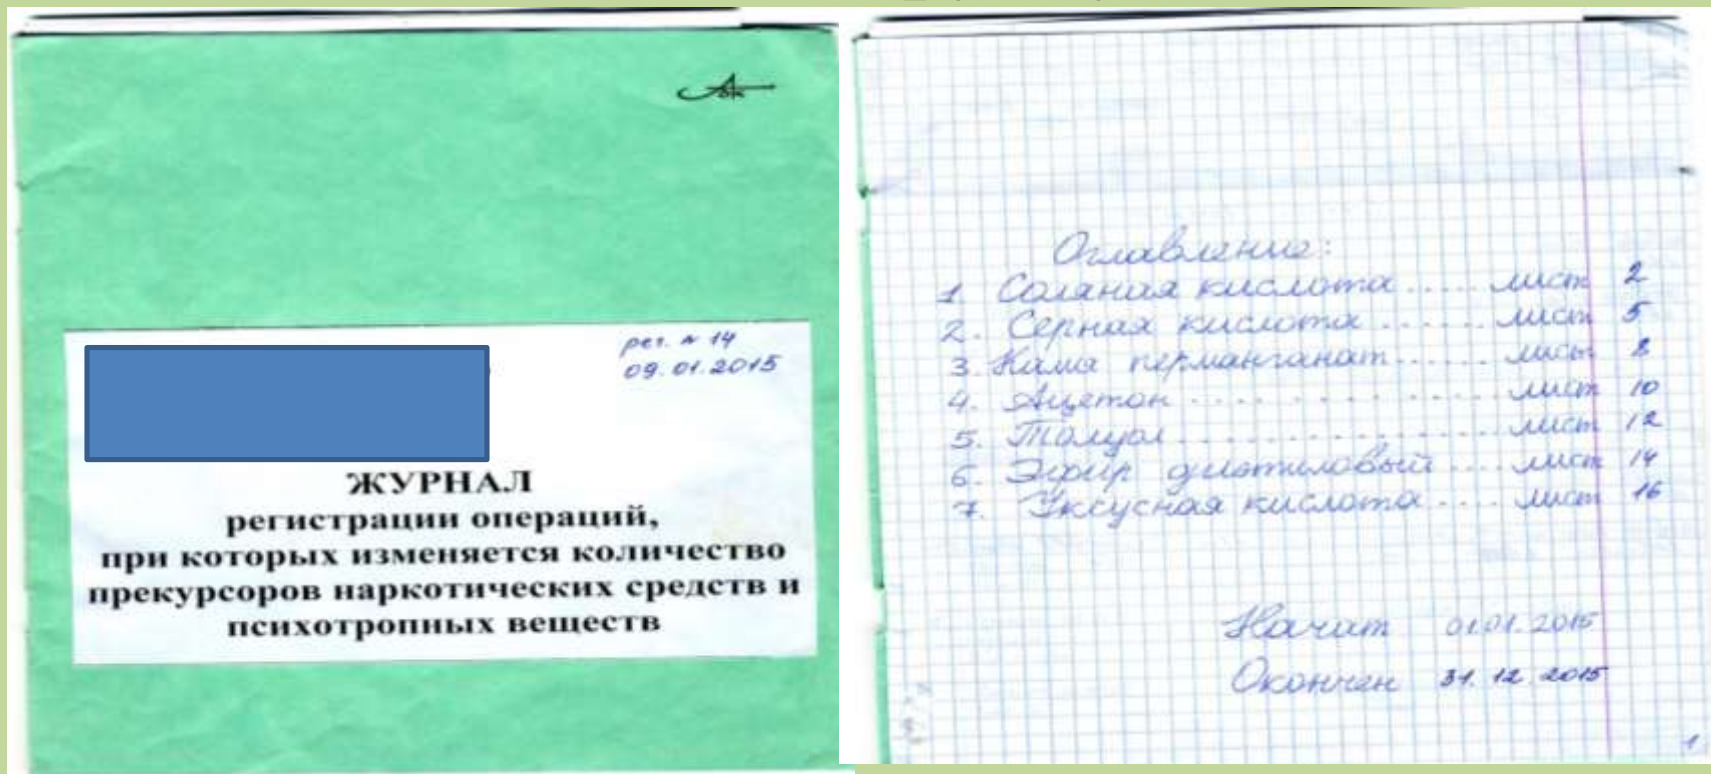 рег. № 14
09.01.2015
ЖУРНАЛ
регистрации операций,
при которых изменяется количество
прекурсоров наркотических средств и
психотропных веществ
Оглавление:
1. Соляная кислота .... лист 2
2. Серная кислота ..... лист 5
3. Калия перманганат .... лист 8
4. Ацетон ............. лист 10
5. Толуол ............. лист 12
6. Эфир диэтиловый ... лист 14
7. Уксусная кислота .... лист 16
Начат 01.01.2015
Окончен 31.12.2015
1